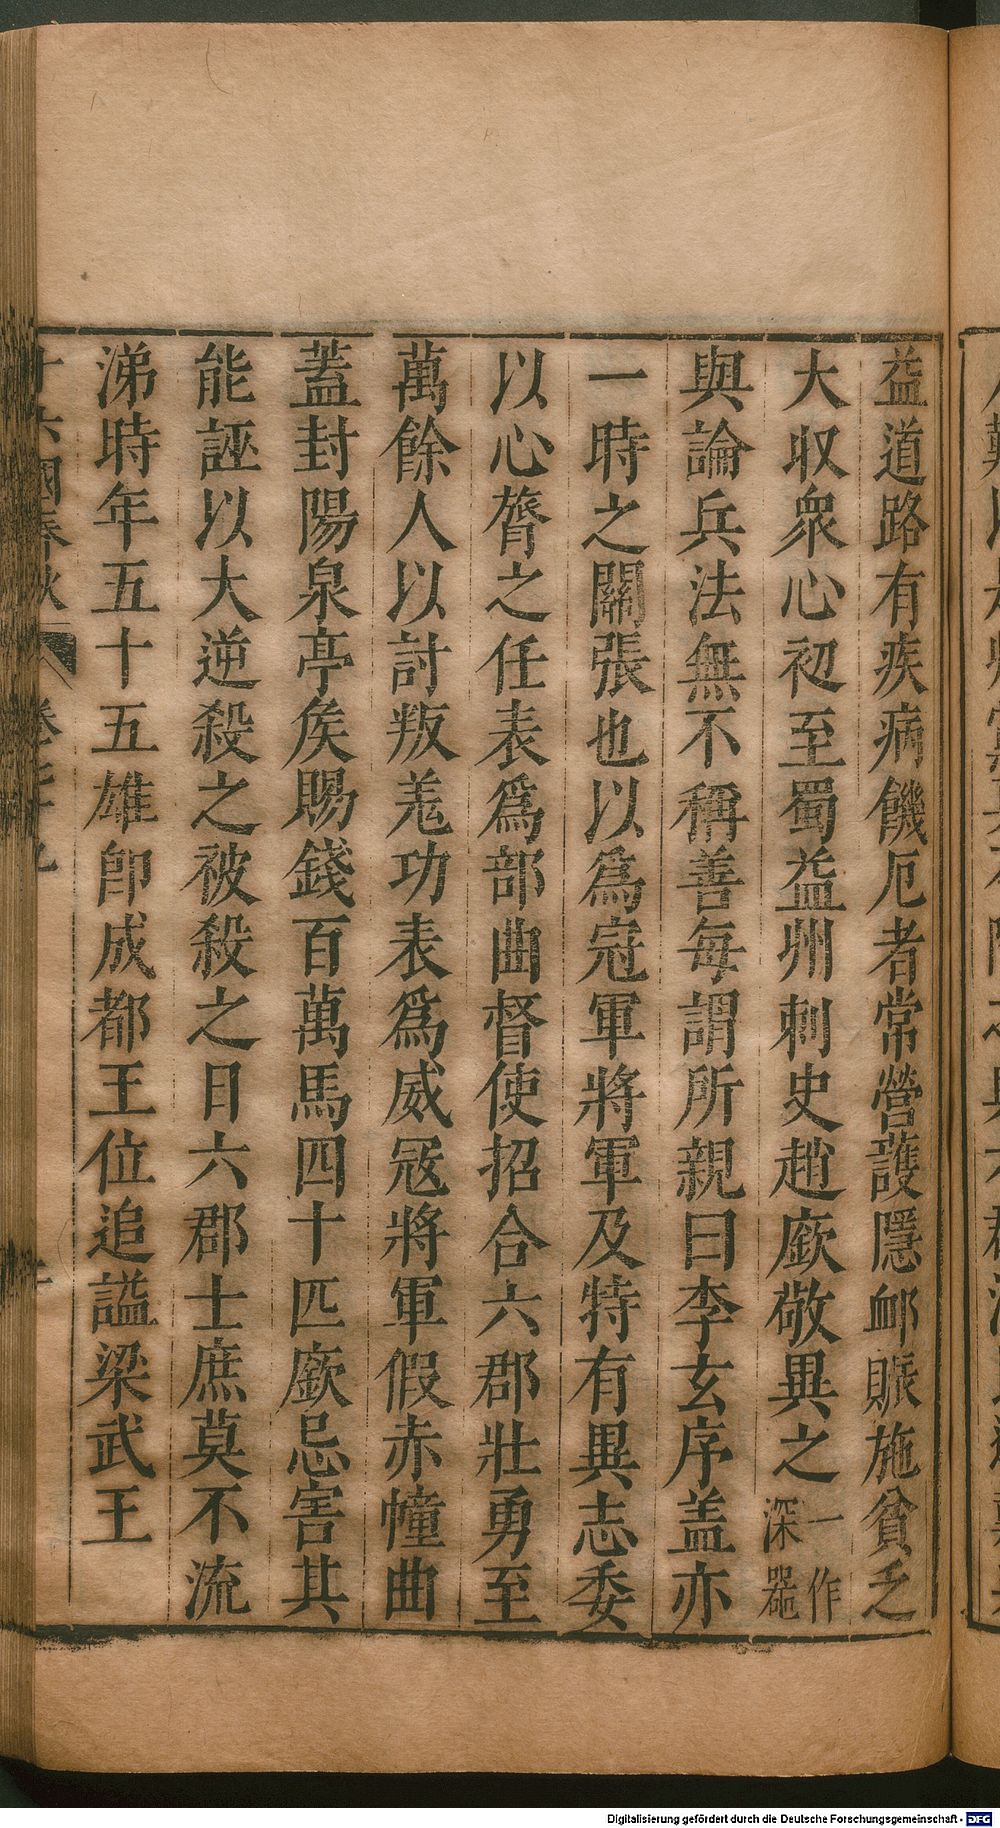 益道路有疾病饑厄者常營護隱卹賑施貧乏
大収衆心初至蜀益州刺史趙廞敬異之一作深器
與論兵法無不稱善每謂所親曰李玄序盖亦
一時之關張也以為冠軍將軍及特有異志委
以心膂之任表爲部曲督使招合六郡壯勇至
萬餘人以討叛羌功表爲威寇將軍假赤幢曲
蓋封陽泉亭矦賜錢百萬馬四十匹廞忌害其
能誣以大逆殺之被殺之日六郡士庶莫不流
涕時年五十五雄卽成都王位追謚梁武王
十六國春秋
Digitalisierung gefördert durch die Deutsche Forschungsgemeinschaft - DFG